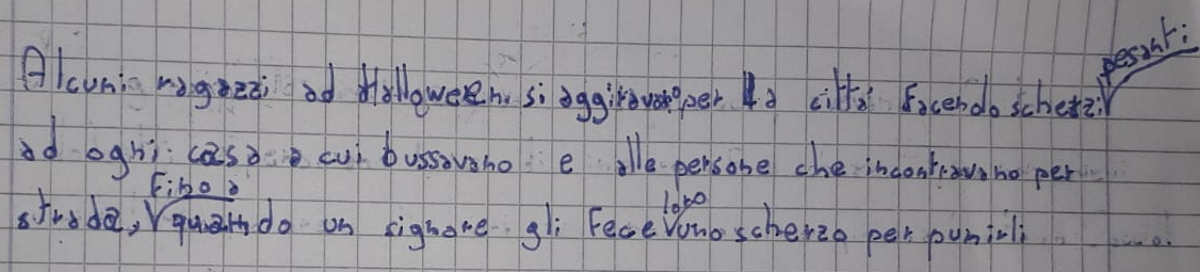 Alcuni ragazzi ad Halloween si aggiravano per la città facendo scherzi pesanti
ad ogni casa a cui bussavano e alle persone che incontravano per
strada, fino a quando un signore gli fece loro uno scherzo per punirli